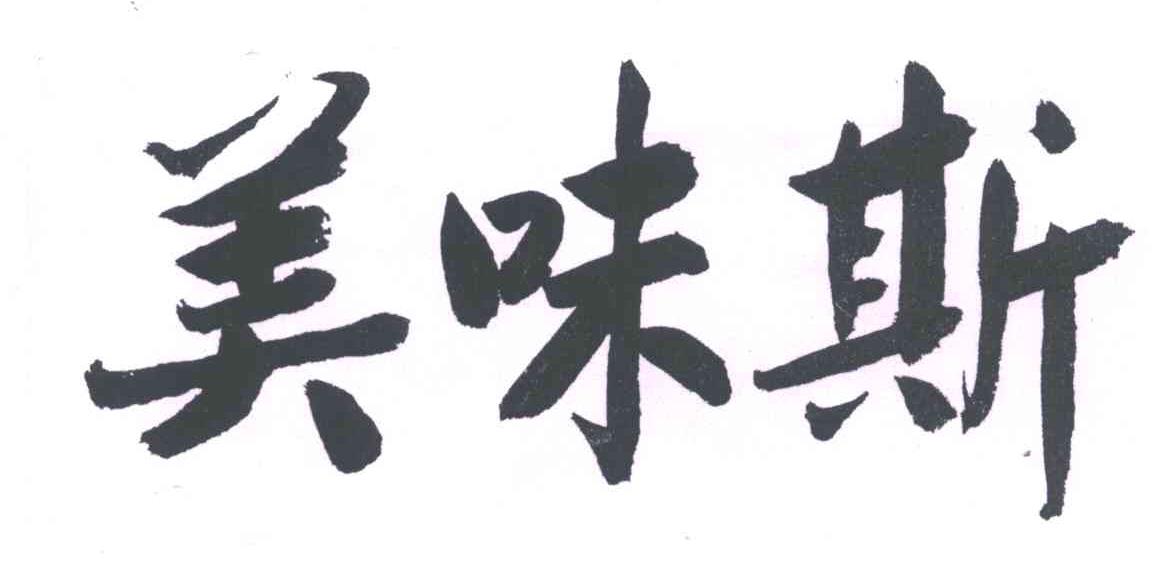 美味斯